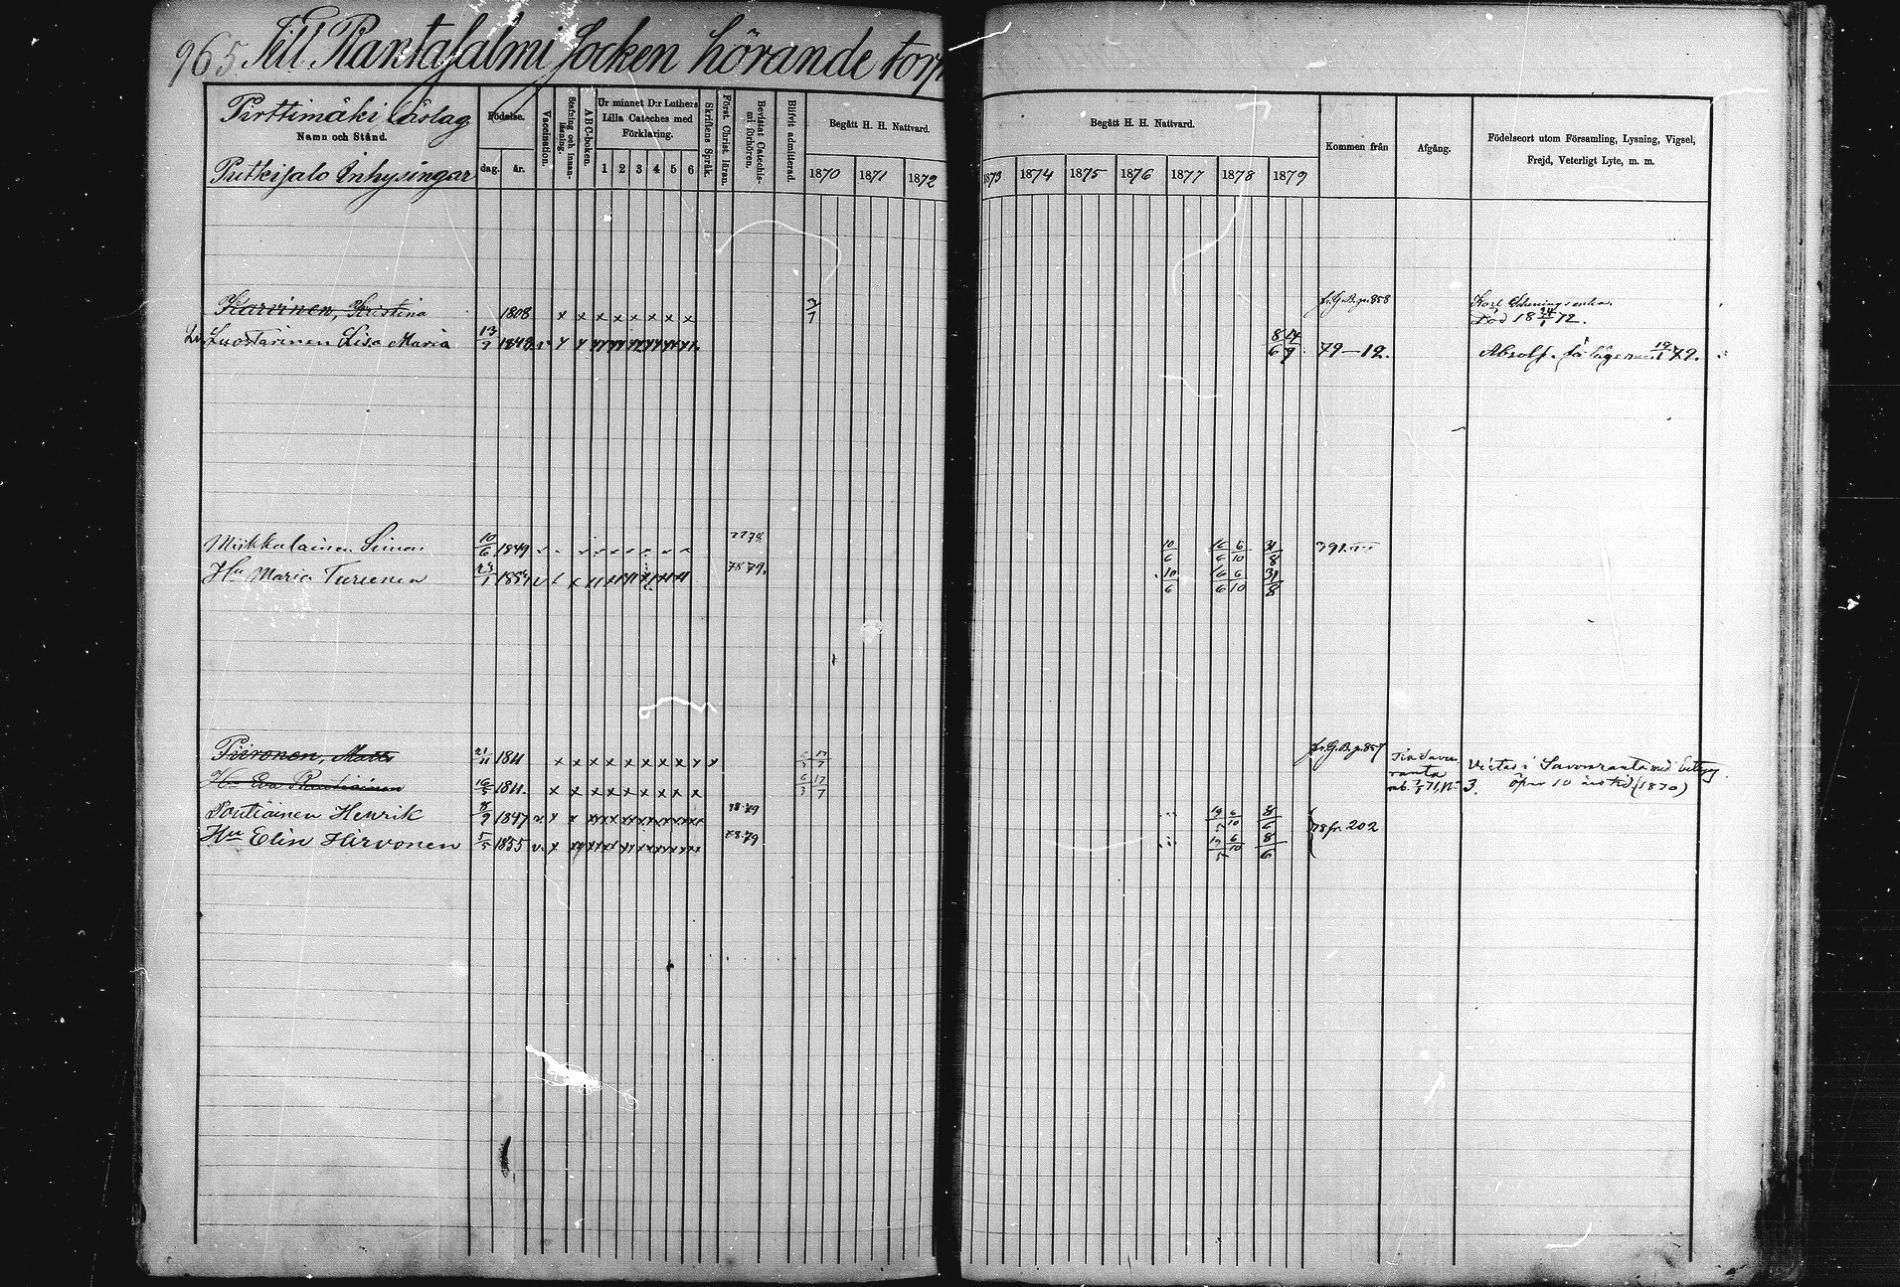 965 Till Rantasalmi Socken hörande torp
Pirttimäki Läslag
Namn och Stånd.
Putkisalo Inhysingar
Födelse.
dag. år.
Vaccination.
Stafning och innan-läsning.
ABC-boken.
Ur minnet D:r Luthers
Lilla Cateches med
Förklaring.
1 2 3 4 5 6
Skriftens Språk.
Först. Christ. läran.
Bevistat Catechis-mi förhören.
Blifvit admitterad.
Begått H. H. Nattvard.
1870 1871 1872
Begått H. H. Nattvard.
1873 1874 1875 1876 1877 1878 1879
Kommen från
Afgång.
Födelseort utom Församling, Lysning, Vigsel,
Frejd, Veterligt Lyte, m. m.
Karvinen, Kristina 1808 x x x x x x x x x 2/7 fr. G.B. p. 858 Karl
Död 18 24/1 72.
Luostarinen Lisa Maria 13/9 1848 8/6 14/9 79–12. Absolv. för lägersm. 19/1 79.
Miikkalainen Simon 10/6 1849 77 78 10/6 16/6 6/10 31/8 391
Hu Maria Turunen 23/1 1854 78 79. 10/6 16/6 6/10 31/8
Piironen, Matts 21/11 1811 x x x x x x x x x x 17/7 fr. G.B. p. 857
Hu Eva Rautiainen 16/5 1811. x x x x x x x x x 6/3 17/7
ranta mb. 71, No 3.
Vistas i Savonranta med betyg
öfver 10 års tid (1870)
Poutiainen Henrik 8/9 1847 78-79 6/10 8/6 78 fr. 202
Hu Elin Hirvonen 5/5 1855 78-79 6/10 8/6